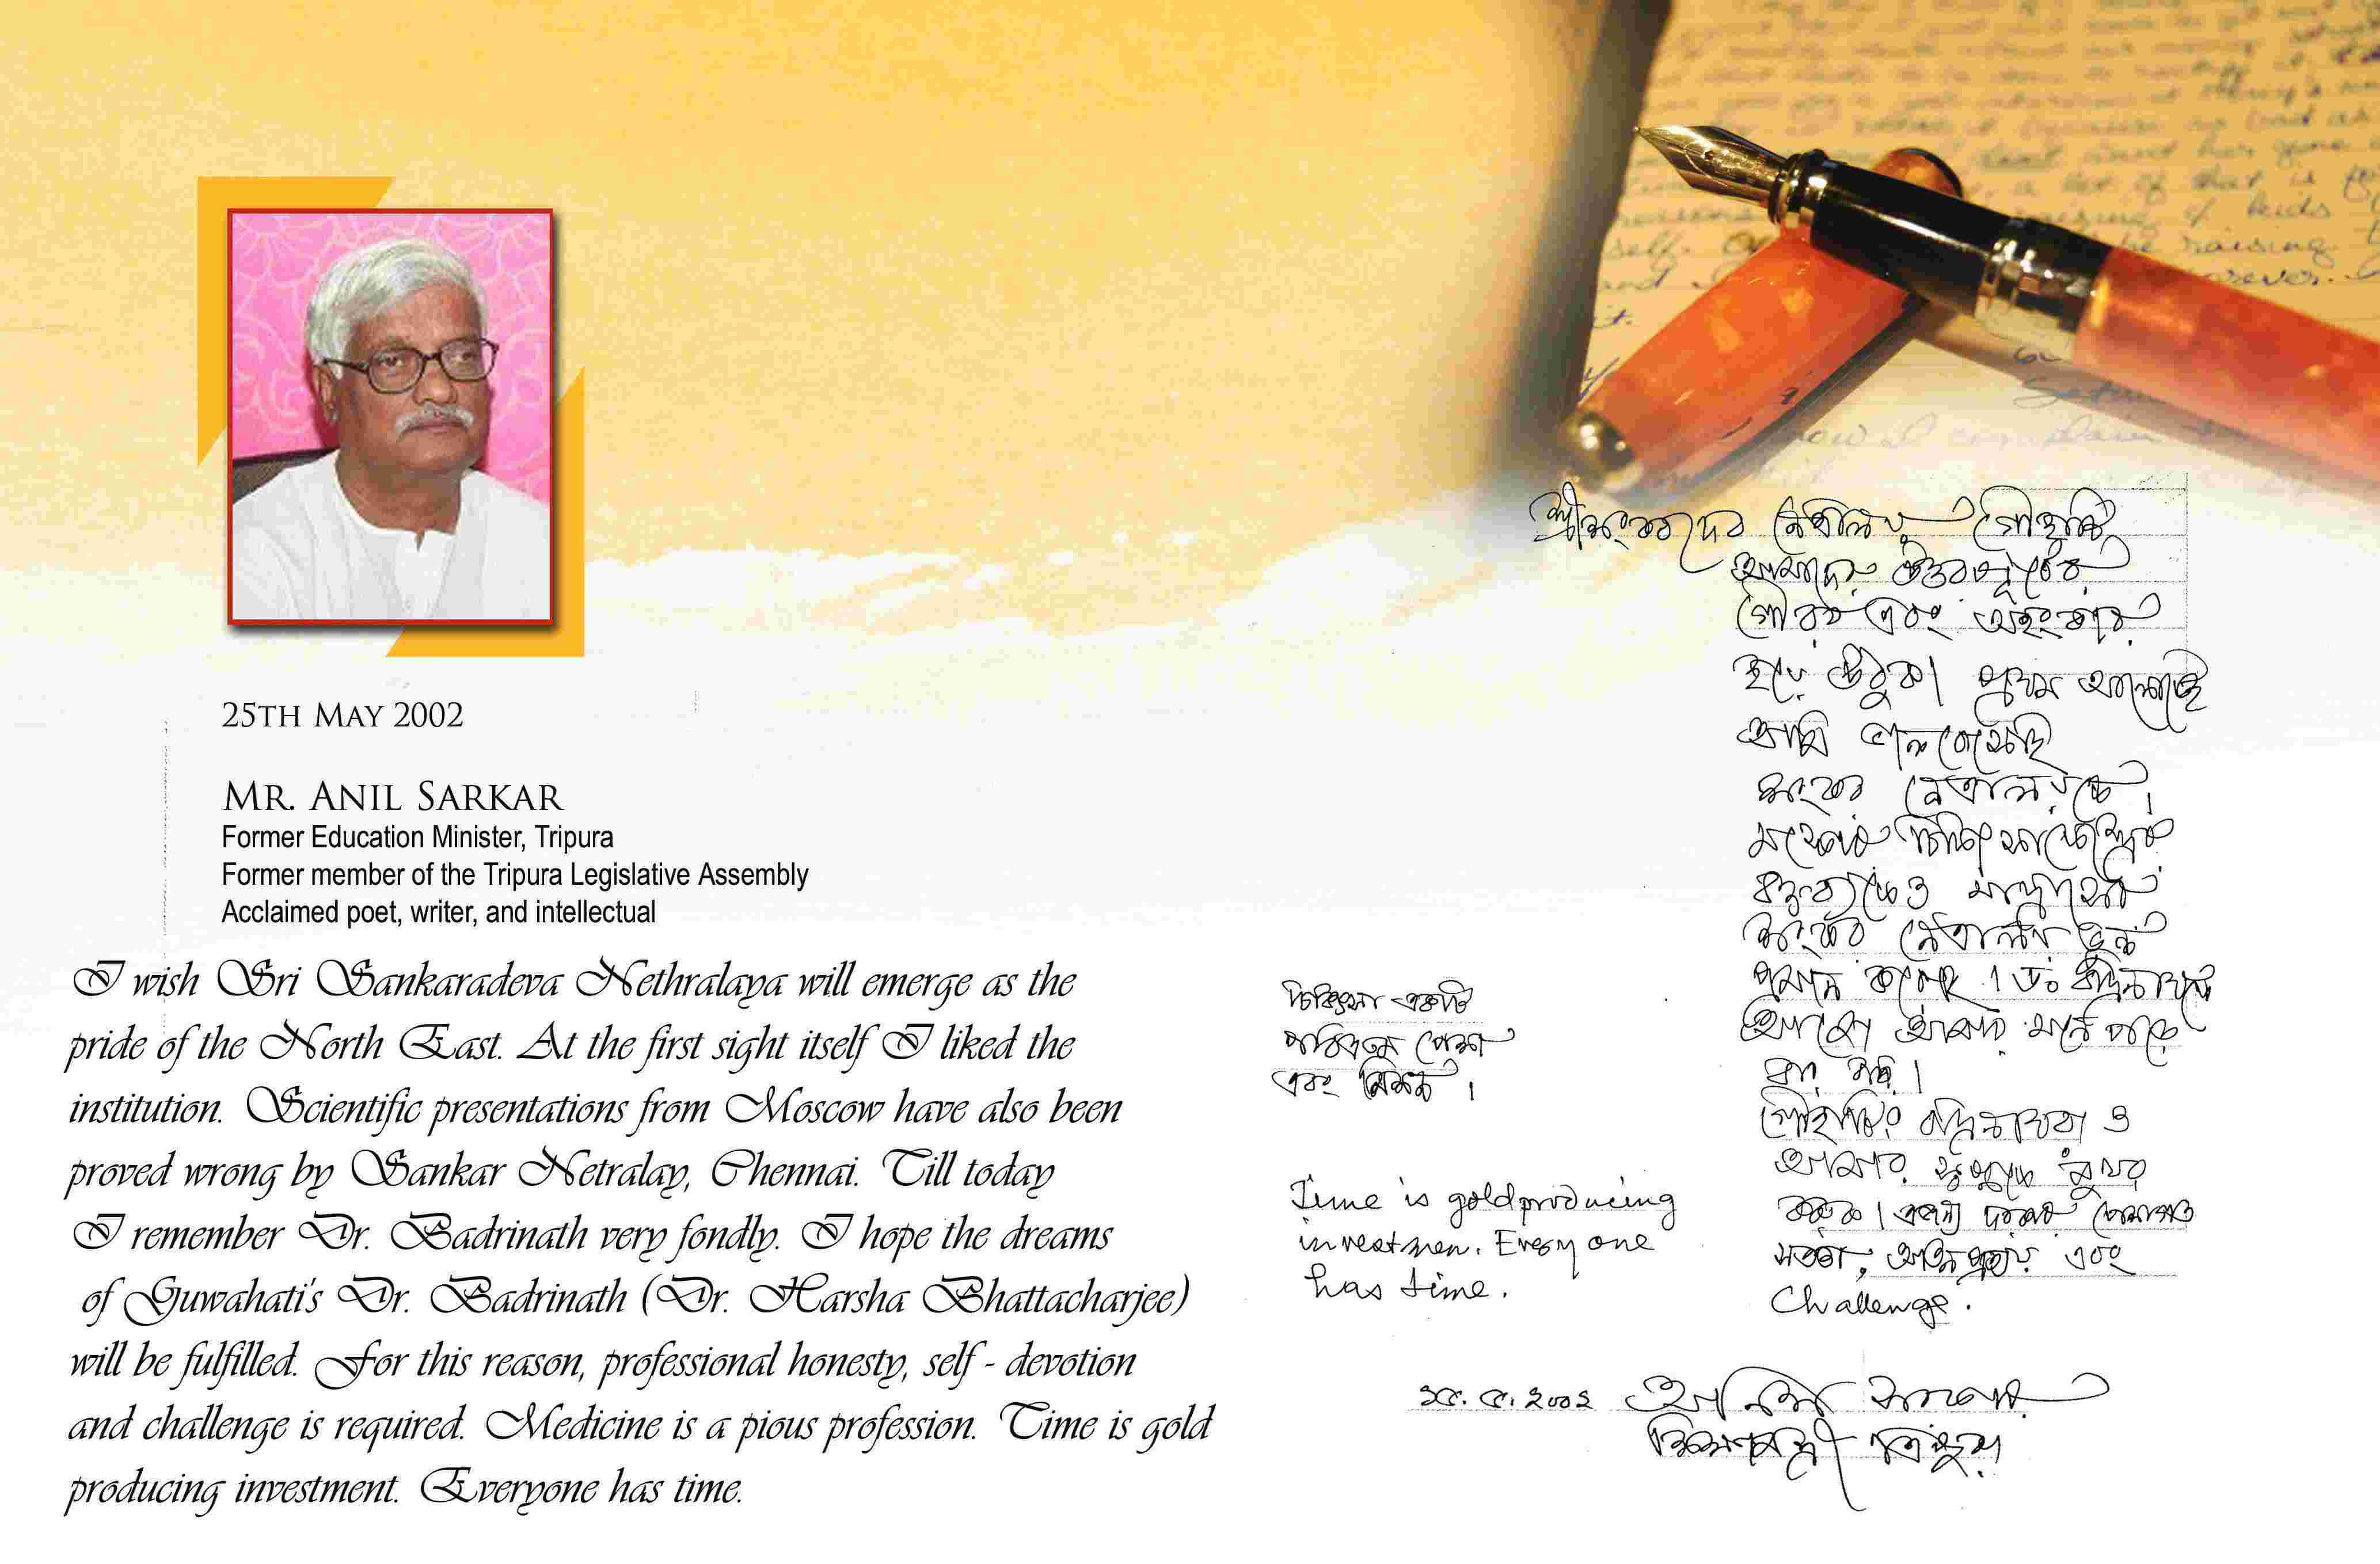 25TH MAY 2002
MR. ANIL SARKAR
Former Education Minister, Tripura
Former member of the Tripura Legislative Assembly
Acclaimed poet, writer, and intellectual
I wish Sri Sankaradeva Nethralaya will emerge as the
pride of the North East. At the first sight itself I liked the
institution. Scientific presentations from Moscow have also been
proved wrong by Sankar Netralay, Chennai. Till today
I remember Dr. Badrinath very fondly. I hope the dreams
of Guwahati's Dr. Badrinath (Dr. Harsha Bhattacharjee)
will be fulfilled. For this reason, professional honesty, self - devotion
and challenge is required. Medicine is a pious profession. Time is gold
producing investment. Everyone has time.
শ্রীশংকরদেব নেত্রালয় গৌহাটি
আমাদের উত্তরপূর্বের
গৌরব এবং অহংকার
হয়ে উঠুক। প্রথম
আমি
শংকর নেত্রালয়কে।
মস্কোর
শংকর নেত্রালয় ভুল
প্রমাণ করেছে। ডঃ বদ্রিনাথকে
আজো আমার মনে পড়ে
গৌহাটির বদ্রিনাথরা ও
আমার
করুক। এজন্য দরকার পেশাগত
সততা, এবং
Challenge.
চিকিৎসা একটি
পবিত্রতম পেশা
এবং
Time is goldproducing
investmen. Every one
has time.
২৫.৫.২০০২ অনিল সরকার
শিক্ষামন্ত্রী ত্রিপুরা